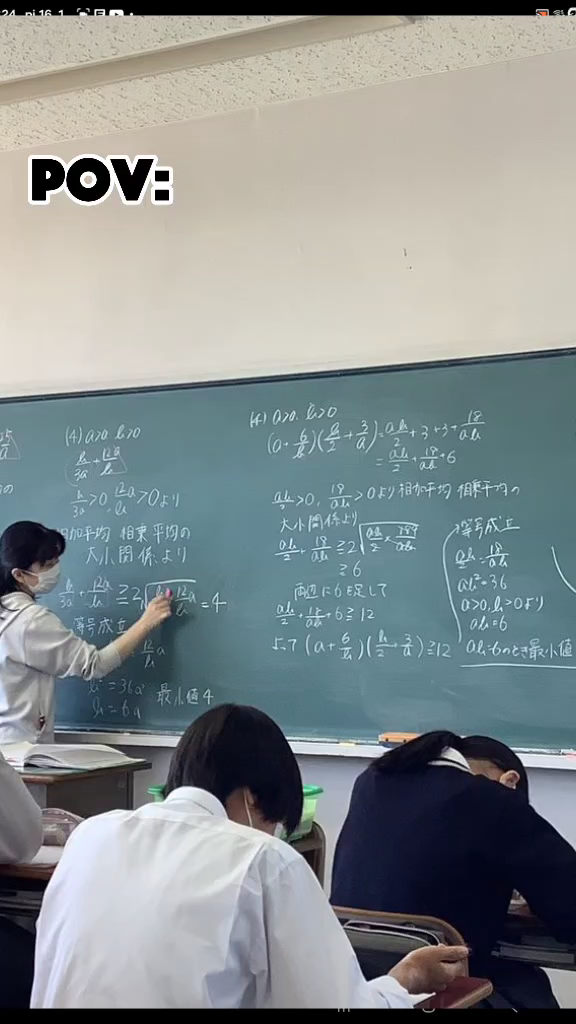 POV:
(4) a>0. b>0
b/3a + 12a/b
b/3a>0, 12a/b>0より
相加平均 相乗平均の
大小関係より
b/3a + 12a/b ≧ 2√ = 4
等号成立
b² = 36a²
b = 6a
最小値4
a>0. b>0
(a+6/b)(b/2+3/a)=ab/2+3+3+18/ab
=ab/2+18/ab+6
ab/2>0, 18/ab>0より相加平均 相乗平均の
大小関係より
ab/2+18/ab≧2√ab/2×18/ab
≧6
両辺に6を足して
ab/2+18/ab+6≧12
よって(a+6/b)(b/2+3/a)≧12
等号成立
ab/2=18/ab
ab²=36
a>0, b>0より
ab=6
ab=6のとき最小値